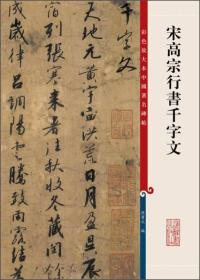 宋高宗行書千字文
彩色放大本中國著名碑帖
孫寶文 編
千字文
天地元黃宇宙洪荒日月盈昃辰
宿列張寒來暑往秋收冬藏閏
歲律呂調陽雲騰致雨露結